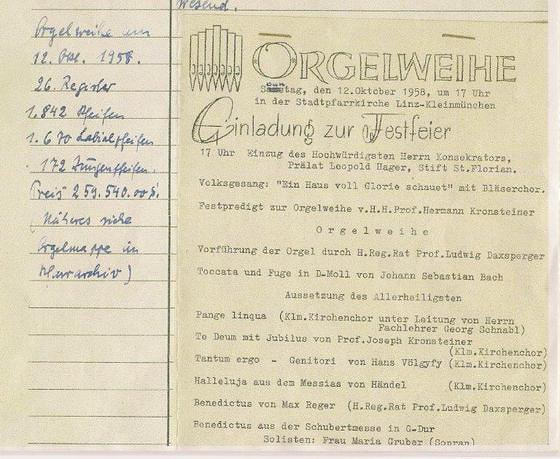 wesend.
Orgelweihe am
12. Okt. 1958.
26. Register
1.842 Pfeifen
1.670 Labialpfeifen
172 Zungenpfeifen.
Preis 259.540.00 S.
(Näheres siehe
Orgelmappe im
Pfarrarchiv)
ORGELWEIHE
den 12.Oktober 1958, um 17 Uhr
in der Stadtpfarrkirche Linz-Kleinmünchen
Einladung zur Festfeier
17 Uhr Einzug des Hochwürdigsten Herrn Konsekrators,
Prälat Leopold Hager, Stift St.Florian.
Volksgesang: "Ein Haus voll Glorie schauet" mit Bläserchor.
Festpredigt zur Orgelweihe v.H.H.Prof.Hermann Kronsteiner
O r g e l w e i h e
Vorführung der Orgel durch H.Reg.Rat Prof.Ludwig Daxsperger
Toccata und Fuge in D-Moll von Johann Sebastian Bach
Aussetzung des Allerheiligsten
Pange linqua (Klm.Kirchenchor unter Leitung von Herrn
Fachlehrer Georg Schnabl)
Te Deum mit Jubilus von Prof.Joseph Kronsteiner
(Klm.Kirchenchor)
Tantum ergo - Genitori von Hans Völgyfy (Klm.Kirchenchor)
Halleluja aus dem Messias von Händel (Klm.Kirchenchor)
Benedictus von Max Reger (H.Reg.Rat Prof.Ludwig Daxsperger)
Benedictus aus der Schubertmesse in G-Dur
Solisten: Frau Maria Gruber (Sopran)